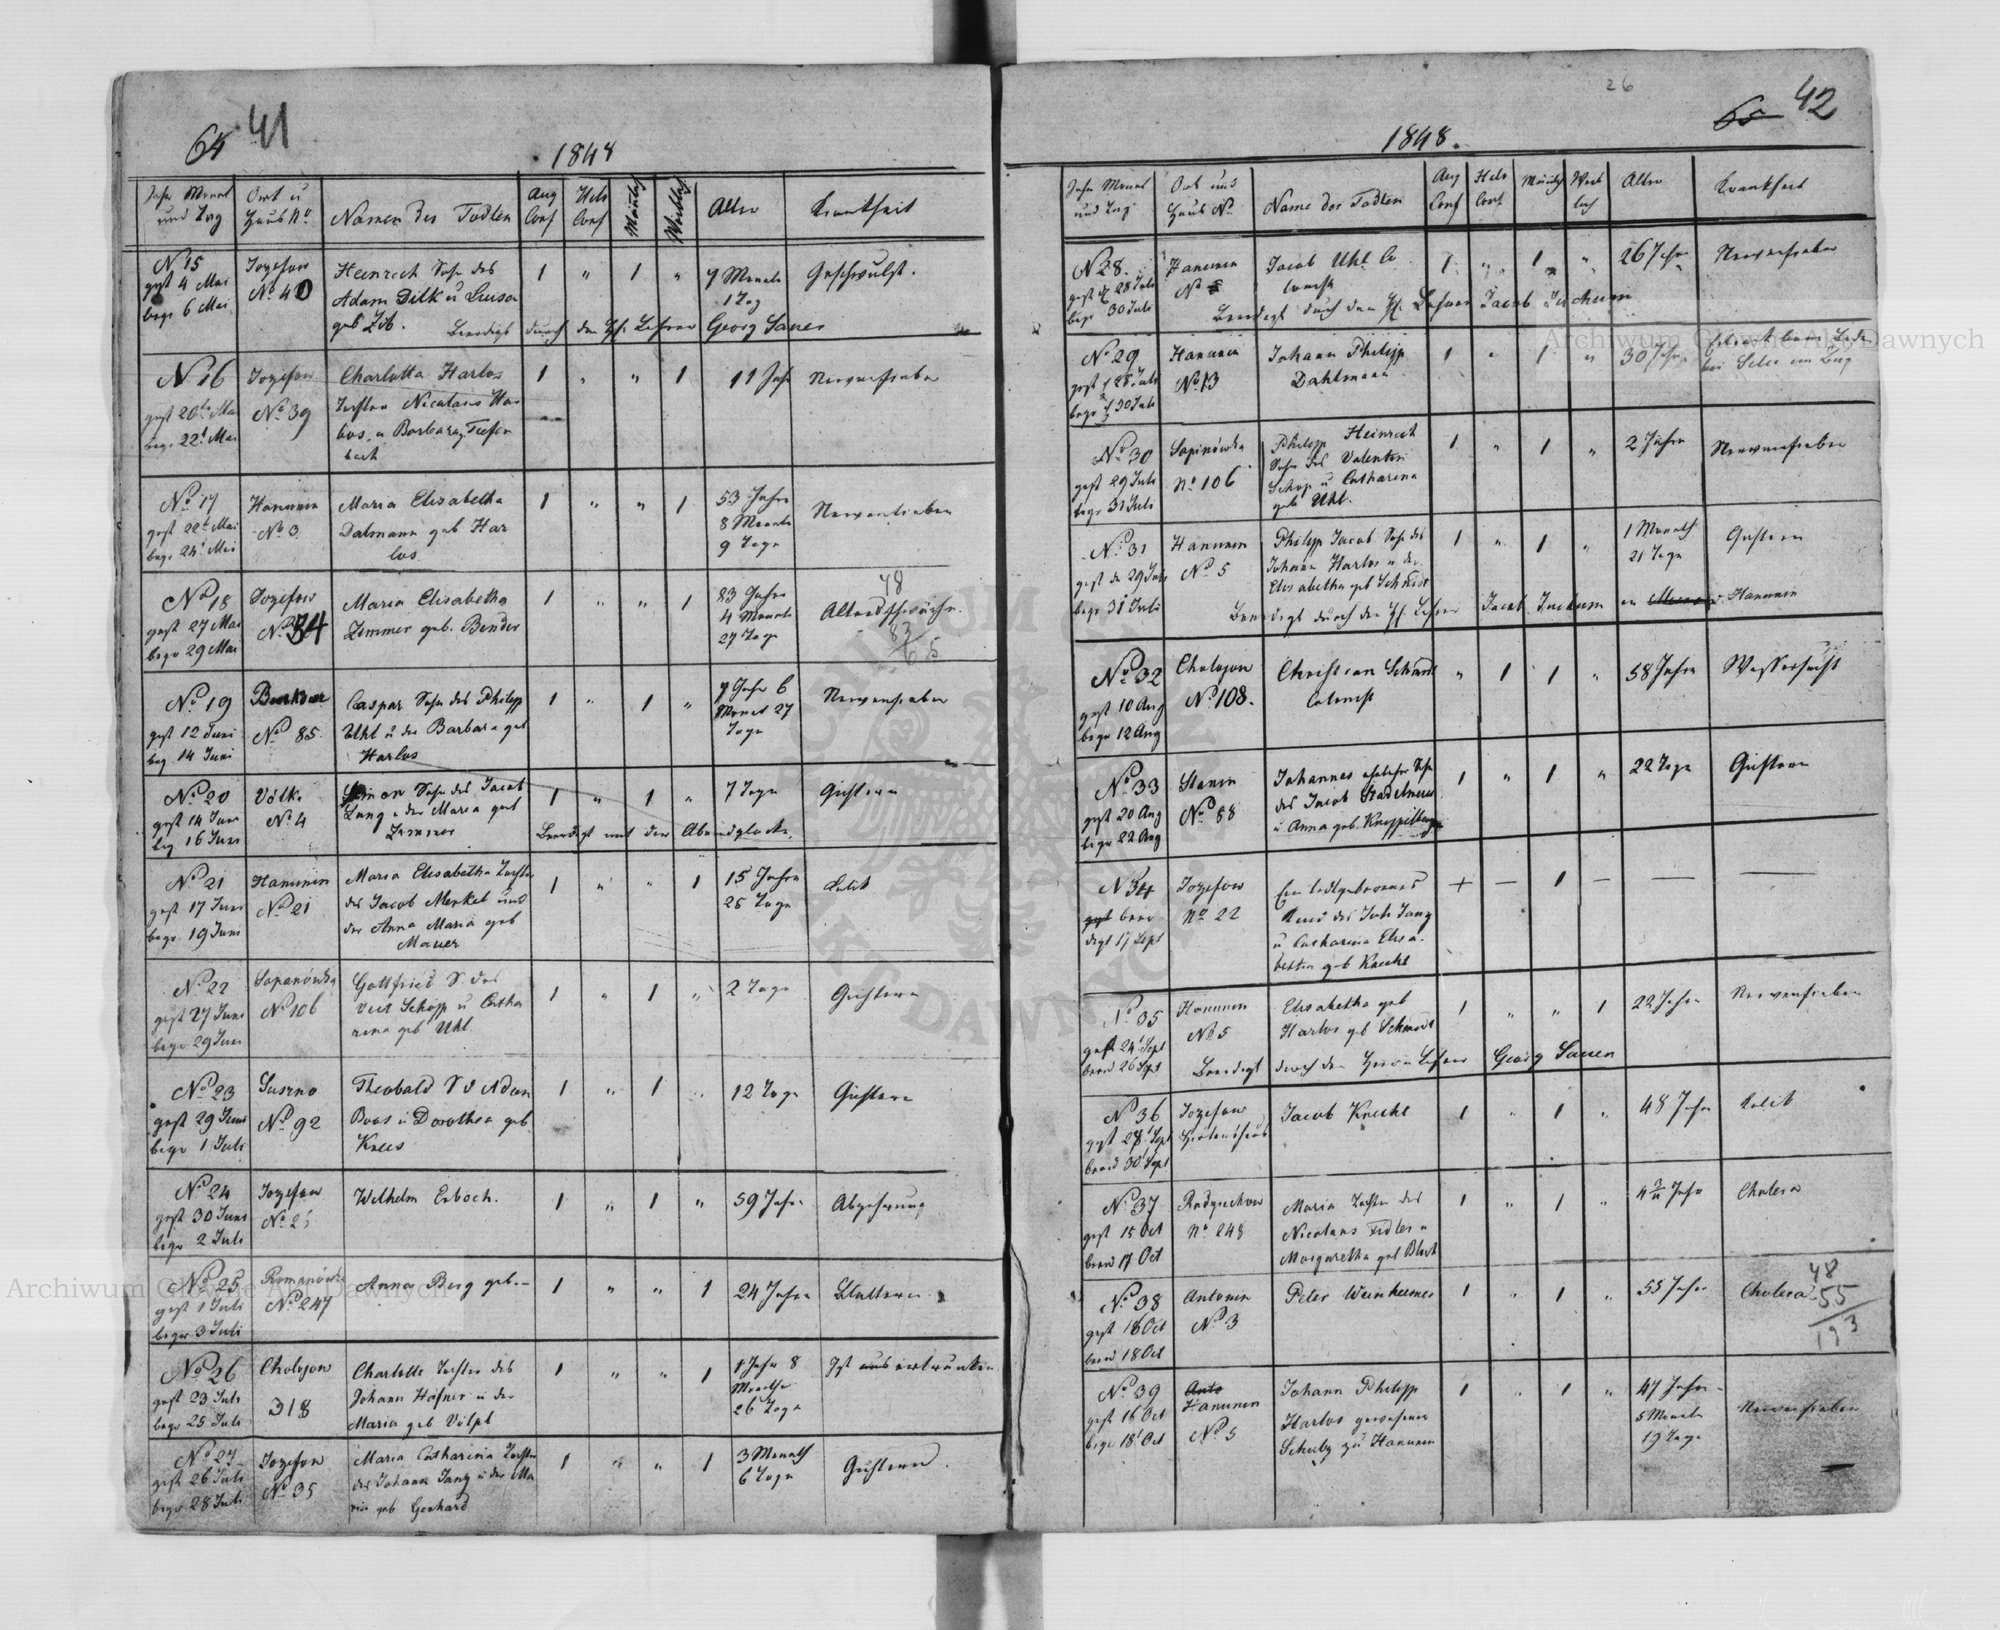 64 41
1848
Jahr Monat und Tag
Ort u Haus No
Namen des Todten
Aug Conf
Helv Conf
Männlich
Weiblich
Alter
Krankheit
No 15 Jozefow Heinrich Sohn des 1 " 1 " 7 Monate Geschwulst.
gest 4 Mai No 40 Adam Dilk u Luisa 1 Tag
begr 6 Mai geb Beerdigt durch den H. Lehrer Georg Sauer
No 16 Jozefow Charlotta Harlos 1 " " 1 11 Jahr Nervenfieber
gest 20t Mai No 39 Tochter Nicolaus Har
begr 22t Mai los, u Barbara Tiefen
bach
No 17 Hanunin Maria Elisabetha 1 " " 1 53 Jahre Nervenfieber
gest 22t Mai No 3 Dalmann geb Har 8 Monate
begr 24t Mai los 9 Tage
No 18 Jozefow Maria Elisabetha 1 " " 1 83 Jahre Altersschwäche 48
gest 27 Mai No 34 Zimmer geb. Bender 4 Monate 83
begr 29 Mai 27 Tage 65
No 19 Caspar Sohn des Philipp 1 " 1 " 7 Jahr 6 Nervenfieber
gest 12 Juni No 85. Uhl u der Barbara geb Monat 27
beg 14 Juni Harlos Tage
No 20 Völk. Simon Sohn des Jacob 1 " 1 " 7 Tage Gichtern
gest 14 Juni No 4 Lang u der Maria geb
beg 16 Juni Zimmer Beerdigt mit der Abendglocke.
No 21 Hanunin Maria Elisabetha Tochter 1 " " 1 15 Jahre Kolik
gest 17 Juni No 21 des Jacob Merkel und 25 Tage
begr 19 Juni der Anna Maria geb
Mauer
No 22 Sapanówka Gottfried S. des 1 " 1 " 2 Tage Gichtern
gest 27 Juni No 106 Veit Schöpp u Catha
begr 29 Juni rina geb Uhl
No 23 Suszno Theobald S d Adam 1 " 1 " 12 Tage Gichtern
gest 29 Juni No 92 Boos u Dorothea geb
begr 1 Juli Krees
No 24 Jozefow Wilhelm Erbach. 1 " 1 " 59 Jahre Abzehrung
gest 30 Juni No 25
begr 2 Juli
No 25 Romanówka Anna Berg geb.– 1 " " 1 24 Jahre Blattern
gest 1 Juli No 247
begr 3 Juli
No 26 Cholojow Charlotte Tochter des 1 " " 1 1 Jahr 8 Ist ertrunken
gest 23 Juli 318 Johann Hafner u der Monathe
begr 25 Juli Maria geb Völpel 26 Tage
No 27 Jozefow Maria Catharina Tochter 1 " " 1 3 Monath Gichtern.
gest 26 Juli No 35 des Johann Jang u der Ma 6 Tage
begr 28 Juli ria geb Gerhard
26
65 42
1848.
Jahr Monat und Tag
Ort und Haus No
Name der Todten
Aug Conf
Helv Conf
Männlich
Weiblich
Alter
Krankheit
No 28. Hanunin Jacob Uhl Co 1 " 1 " 26 Jahre Nervenfieber
gest d 28 Juli No lonist
begr 30 Juli Beerdigt durch den H. Lehrer Jacob Juchum
No 29 Hanunin Johann Philipp 1 " 1 " 30 Jahre
gest d 28 Juli No 13 Dahlmann
begr d 30 Juli
No 30 Sapinówka Philipp Heinrich 1 " 1 " 2 Jahre Nervenfieber
gest 29 Juli No 106 Sohn des Valentin
begr 31 Juli Schöp u Catharina
geb Uhl.
No 31 Hanunin Philipp Jacob Sohn des 1 " 1 " 1 Monath Gichtern
gest de 29 Juli No 5 Johann Harlos u der 21 Tage
begr 31 Juli Elisabetha geb Schmidt
Beerdigt durch den H. Lehrer Jacob Juchum in Hanunin
No 32 Cholojow Christian Schmidt " 1 1 " 58 Jahre Wassersucht
gest 10 Aug No 108. Colonist
begr 12 Aug
No 33 Stanin Johannes ehelicher Sohn 1 " 1 " 22 Tage Gichtern
gest 20 Aug No 88 des Jacob Stadelmeier
begr 22 Aug u Anna geb.
No 34 Jozefow Ein todtgeborenes + — 1 — — —
gest beer No 22 Kind des Joh Jang
digt 17 Sept u Catharina Elisa
betha geb Knecht
No 35 Hanunin Elisabetha geb 1 " " 1 22 Jahre Nervenfieber
gest 24t Sept No 5 Harlos geb Schmidt
beerd 26 Sept Beerdigt durch den Herrn Lehrer Georg Sauer
No 36 Jozefow Jacob Knecht 1 " 1 " 48 Jahr Kolik
gest 28 Sept Hirtenhaus
beerd 30 Sept
No 37 Radziechow Maria Tochter des 1 " 1 " 4 3/4 Jahr Cholera
gest 15 Oct No 248 Nicolaus Fidler u
beerd 17 Oct Margaretha geb
No 38 Antonin Peter Weinheimer 1 " 1 " 55 Jahre Cholera 48
gest 16 Oct No 3 55
beerd 18 Oct 193
No 39 Anto Johann Philipp 1 " 1 " 47 Jahre Nervenfieber
gest 16 Oct Hanunin Harlos gewesener 5 Monate
begr 18t Oct No 5 Schulz zu Hanunin 19 Tage
Archiwum Główne Akt Dawnych
Archiwum Główne Akt Dawnych